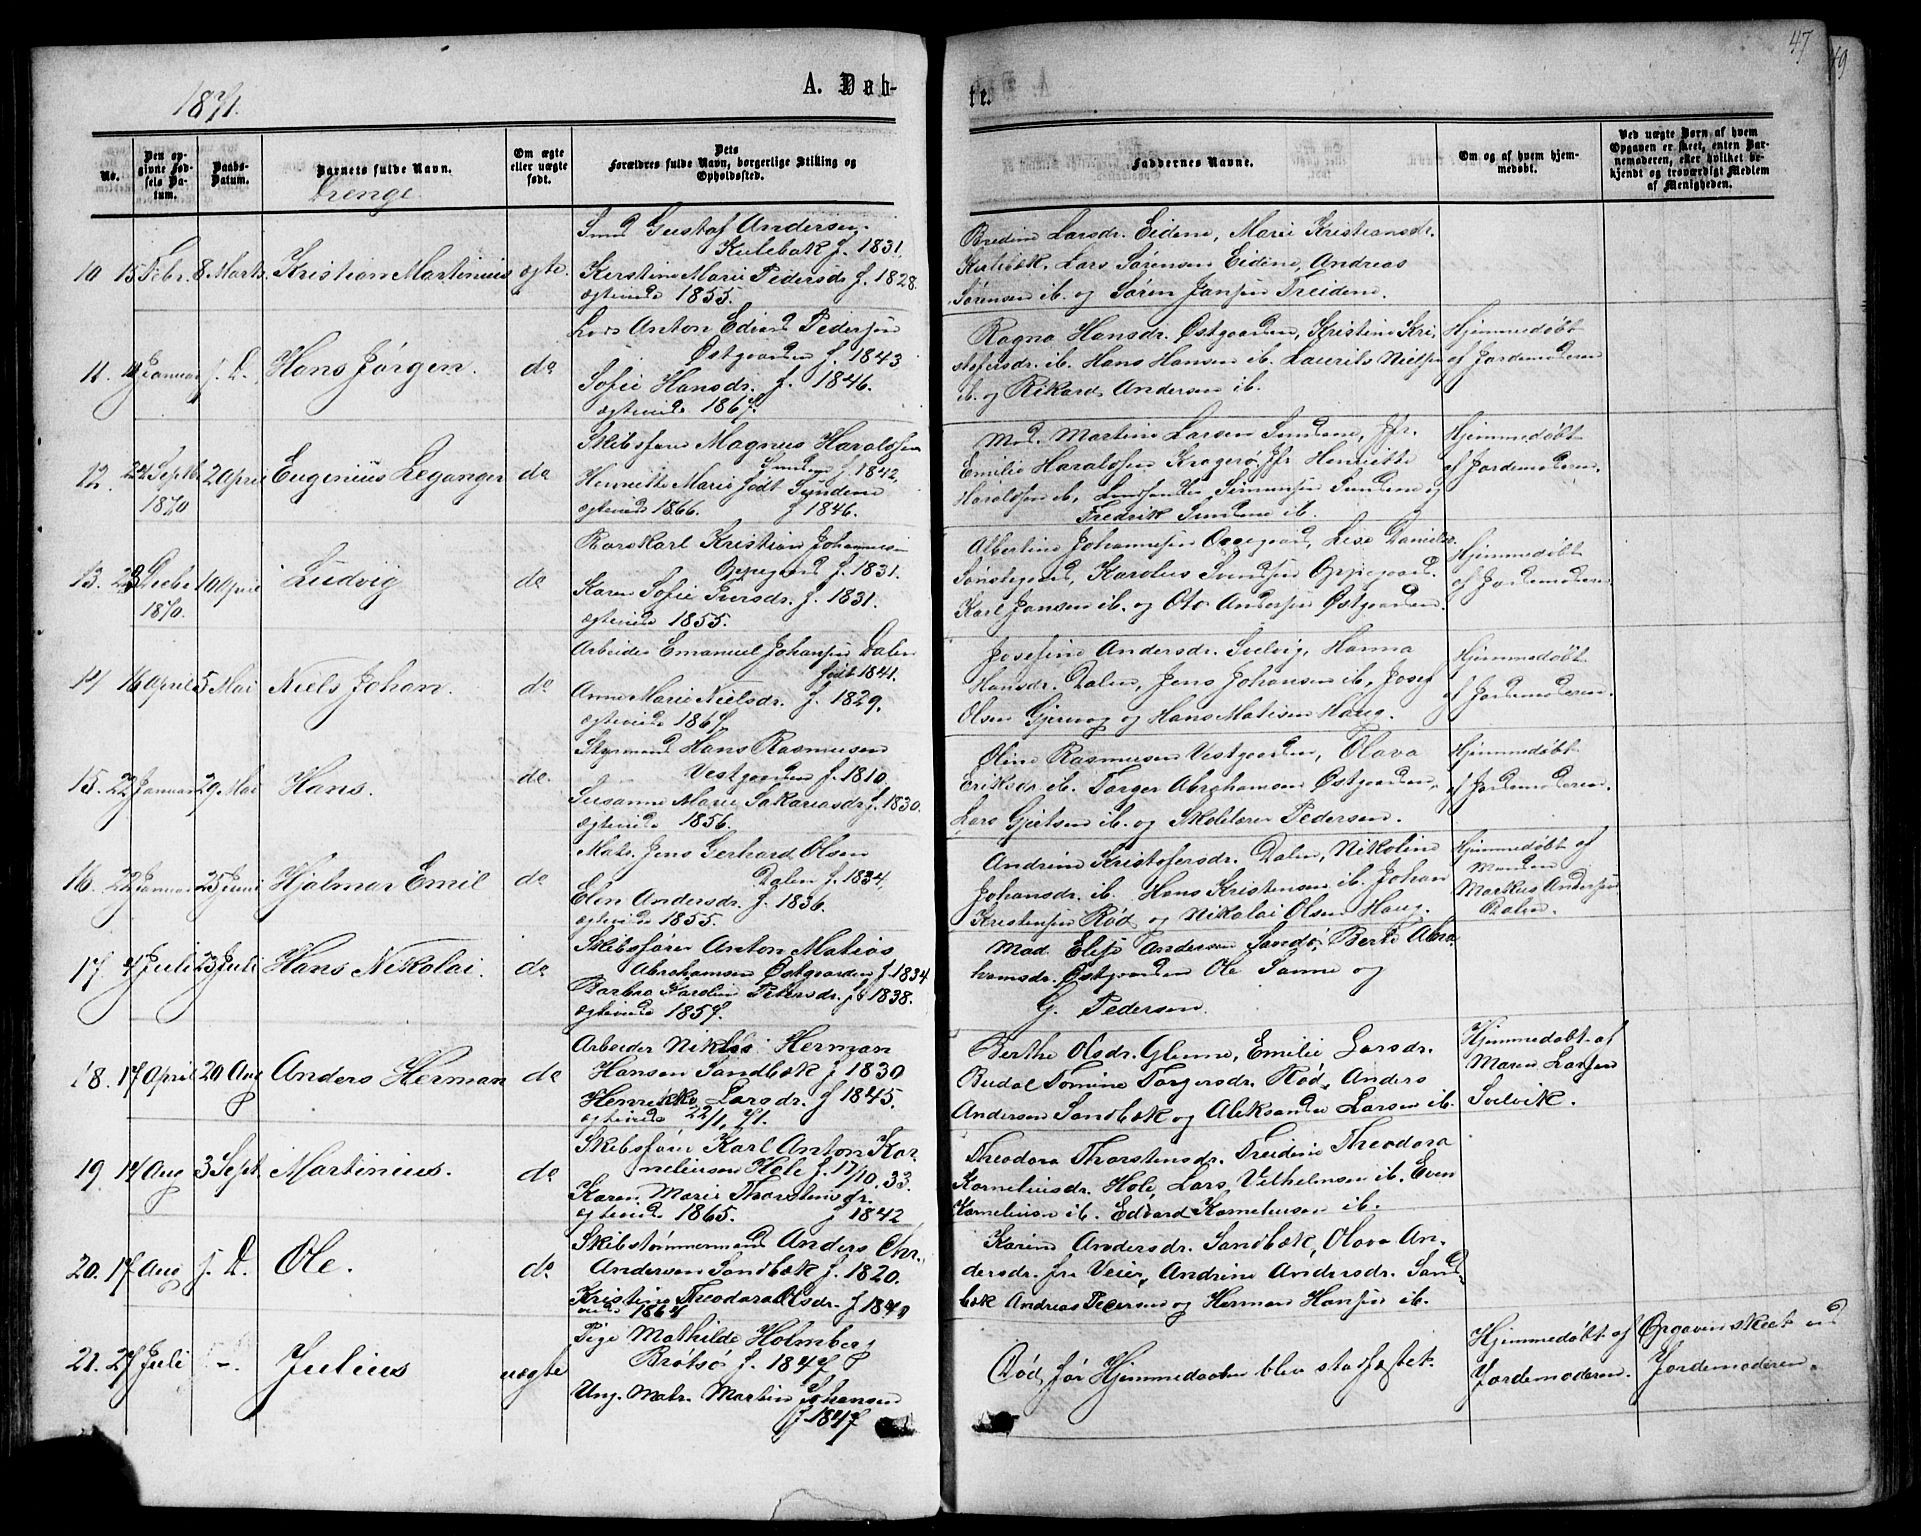 47
49
1871.
A. Døb-
te.
No.
Den op-
givne Fød-
sels Da-
tum.
Daabs-
Datum.
Barnets fulde Navn.
Drenge
Om ægte
eller uægte
født.
Dets
Forældres fulde Navn, borgerlige Stilling og
Opholdssted.
Faddernes Navne.
Om og af hvem hjem-
medøbt.
Ved uægte Børn af hvem
Opgaven er skeet, enten Bar-
nemoderen, eller hvilket be-
kjendt og troværdigt Medlem
af Menigheden.
10 15 Febr. 8 Marts Kristian Martinius ægte.
Smed Gustaf Andersen
Kulebak f. 1831,
Kerstine Marie Pedersdr f. 1828.
ægteviede 1855.
Bredine Larsdr. Eidene, Marie Kristiansdr.
Kulebæk, Lars Sørensen Eidene, Andreas
Sørensen ib. og Søren Jansen Treidene.
11. Januar s. D. Hans Jørgen. do
Lods Anton Edvard Pedersen
Østgaarden f. 1843
Sofie Hansdr. f. 1846.
ægteviede 1867.
Ragna Hansdr. Østgaarden, Kristine Kri-
stofersdr. ib. Hans Hansen ib. Laurits Nielsen
ib. og Rikard Andersen ib.
Hjemmedøbt
af Jordemoderen
12. 24 Septb 1870 2 April Eugenius Leganger do
Skibsfører Magnus Haraldsen
Sundene f. 1842,
Henriette Marie født Sundene
ægteviede 1866. f 1846.
Mad. Martine Larsen Sundene, Jfr.
Emilie Haraldsen Kragerø, Jfr Henriette
Haraldsen ib, Simonsen Sundene og
Fredrik Sundene ib.
Hjemmedøbt
af Jordemoderen.
13. 23 Decbr 1870. 10 April Ludvig do
Baaskarl Kristian Johannesen
Oppegaard f. 1831.
Karen Sofie Iversdr. f. 1831.
ægteviede 1855.
Albertine Johannesen Oppegaard, Lise Daniels.
Sønstegaard, Karolus Svendsen Oppegaard.
Karl Jansen ib. og Oto Andersen Østgaarden.
Hjemmedøbt
af Jordemoderen
14 16 April 5 Mai Niels Johan. do
Arbeider Emanuel Johansen Dalen
født 1841.
Anne Marie Nielsdr. f. 1829.
ægteviede 1867
Josefine Andersdr. Svelvig, Hanna
Hansdr. Dalen, Jens Johansen ib, Josef
Olsen Gjerevog og Hans Matisen Haug.
Hjemmedøbt
af Jordemoderen.
15. 22 Januar 29 Mai Hans. do
Styrmand Hans Rasmusen
Vestgaarden f. 1810,
Susanne Marie Sakariasdr f. 1830.
ægteviede 1856.
Oline Rasmusen Vestgaarden, Olava
Eriksdr ib. Torger Abrahamsen Østgaarden,
Lars Gjertsen ib. og Skolelærer Pedersen.
Hjemmedøbt
af Jordemoderen.
16. 22 Januar 25 Juni Hjalmar Emil do
Matr. Jens Gerhard Olsen
Dalen f. 1834,
Elen Andersdr. f. 1836.
ægteviede 1855.
Andrine Kristofersdr. Dalen, Nikoline
Johansdr. ib. Hans Kristensen ib. Johan
Kristensen Rød og Nikolai Olsen Haug.
Hjemmedøbt af
Manden
Markus Andersen
Dalen.
17. 4 Juli 23 Juli Hans Nikolai. do
Skibsfører Anton Matias
Abrahamsen Østgaarden f. 1834
Barbra Karoline Petersdr. f. 1838.
ægteviede 1857.
Mad Elise Andersen Sandø, Berte Abra
hamsdr. Østgaarden Ole Sanne og
G. Pedersen.
18. 17 April 20 Aug Anders Herman do
Arbeider Niklas Herman
Hansen Sandbæk f 1830
Henrikke Larsdr. f 1845.
ægteviede 22/1, 71.
Berthe Olsdr. Glenne, Emilie Larsdr.
Budal Tomine Torgersdr. Rød, Anders
Andersen Sandbæk og Aleksander Larsen ib.
Hjemmedøbt af
Maren Larsen
Svelvik.
19. 14 Aug 3 Sept. Martinius. do
Skibsfører Karl Anton Kor-
neliusen Hole f. 17/10. 33.
Karen Marie Thorstensdr.
ægteviede 1865. f 1842
Theodora Thorstensdr. Treidene Theodora
Korneliusdr. Hole, Lars Vilhelmsen ib. Even
Korneliusen ib. Edvard Korneliusen ib.
20. 17 Aug s. D. Ole. do
Skibstømmermand Anders Chr.
Andersen Sandbæk f. 1820.
Kristine Theodora Olsdr. f 1840
viede 1864
Karine Andersdr. Sandbæk, Olava An-
dersdr. fra Veier, Andrine Andersdr. Sand-
bæk Andreas Pedersen og Herman Hansen ib.
21. 27 Juli - Julius uægte
Pige Mathilde Holmberg
Brøtsø f. 1847
Ung. Matr. Martin Johansen
f 1847
Død før Hjemmedaaben blev stadfæstet.
Hjemmedøbt af
Jordemoderen.
Opgaven skeet ved
Jordemoderen.